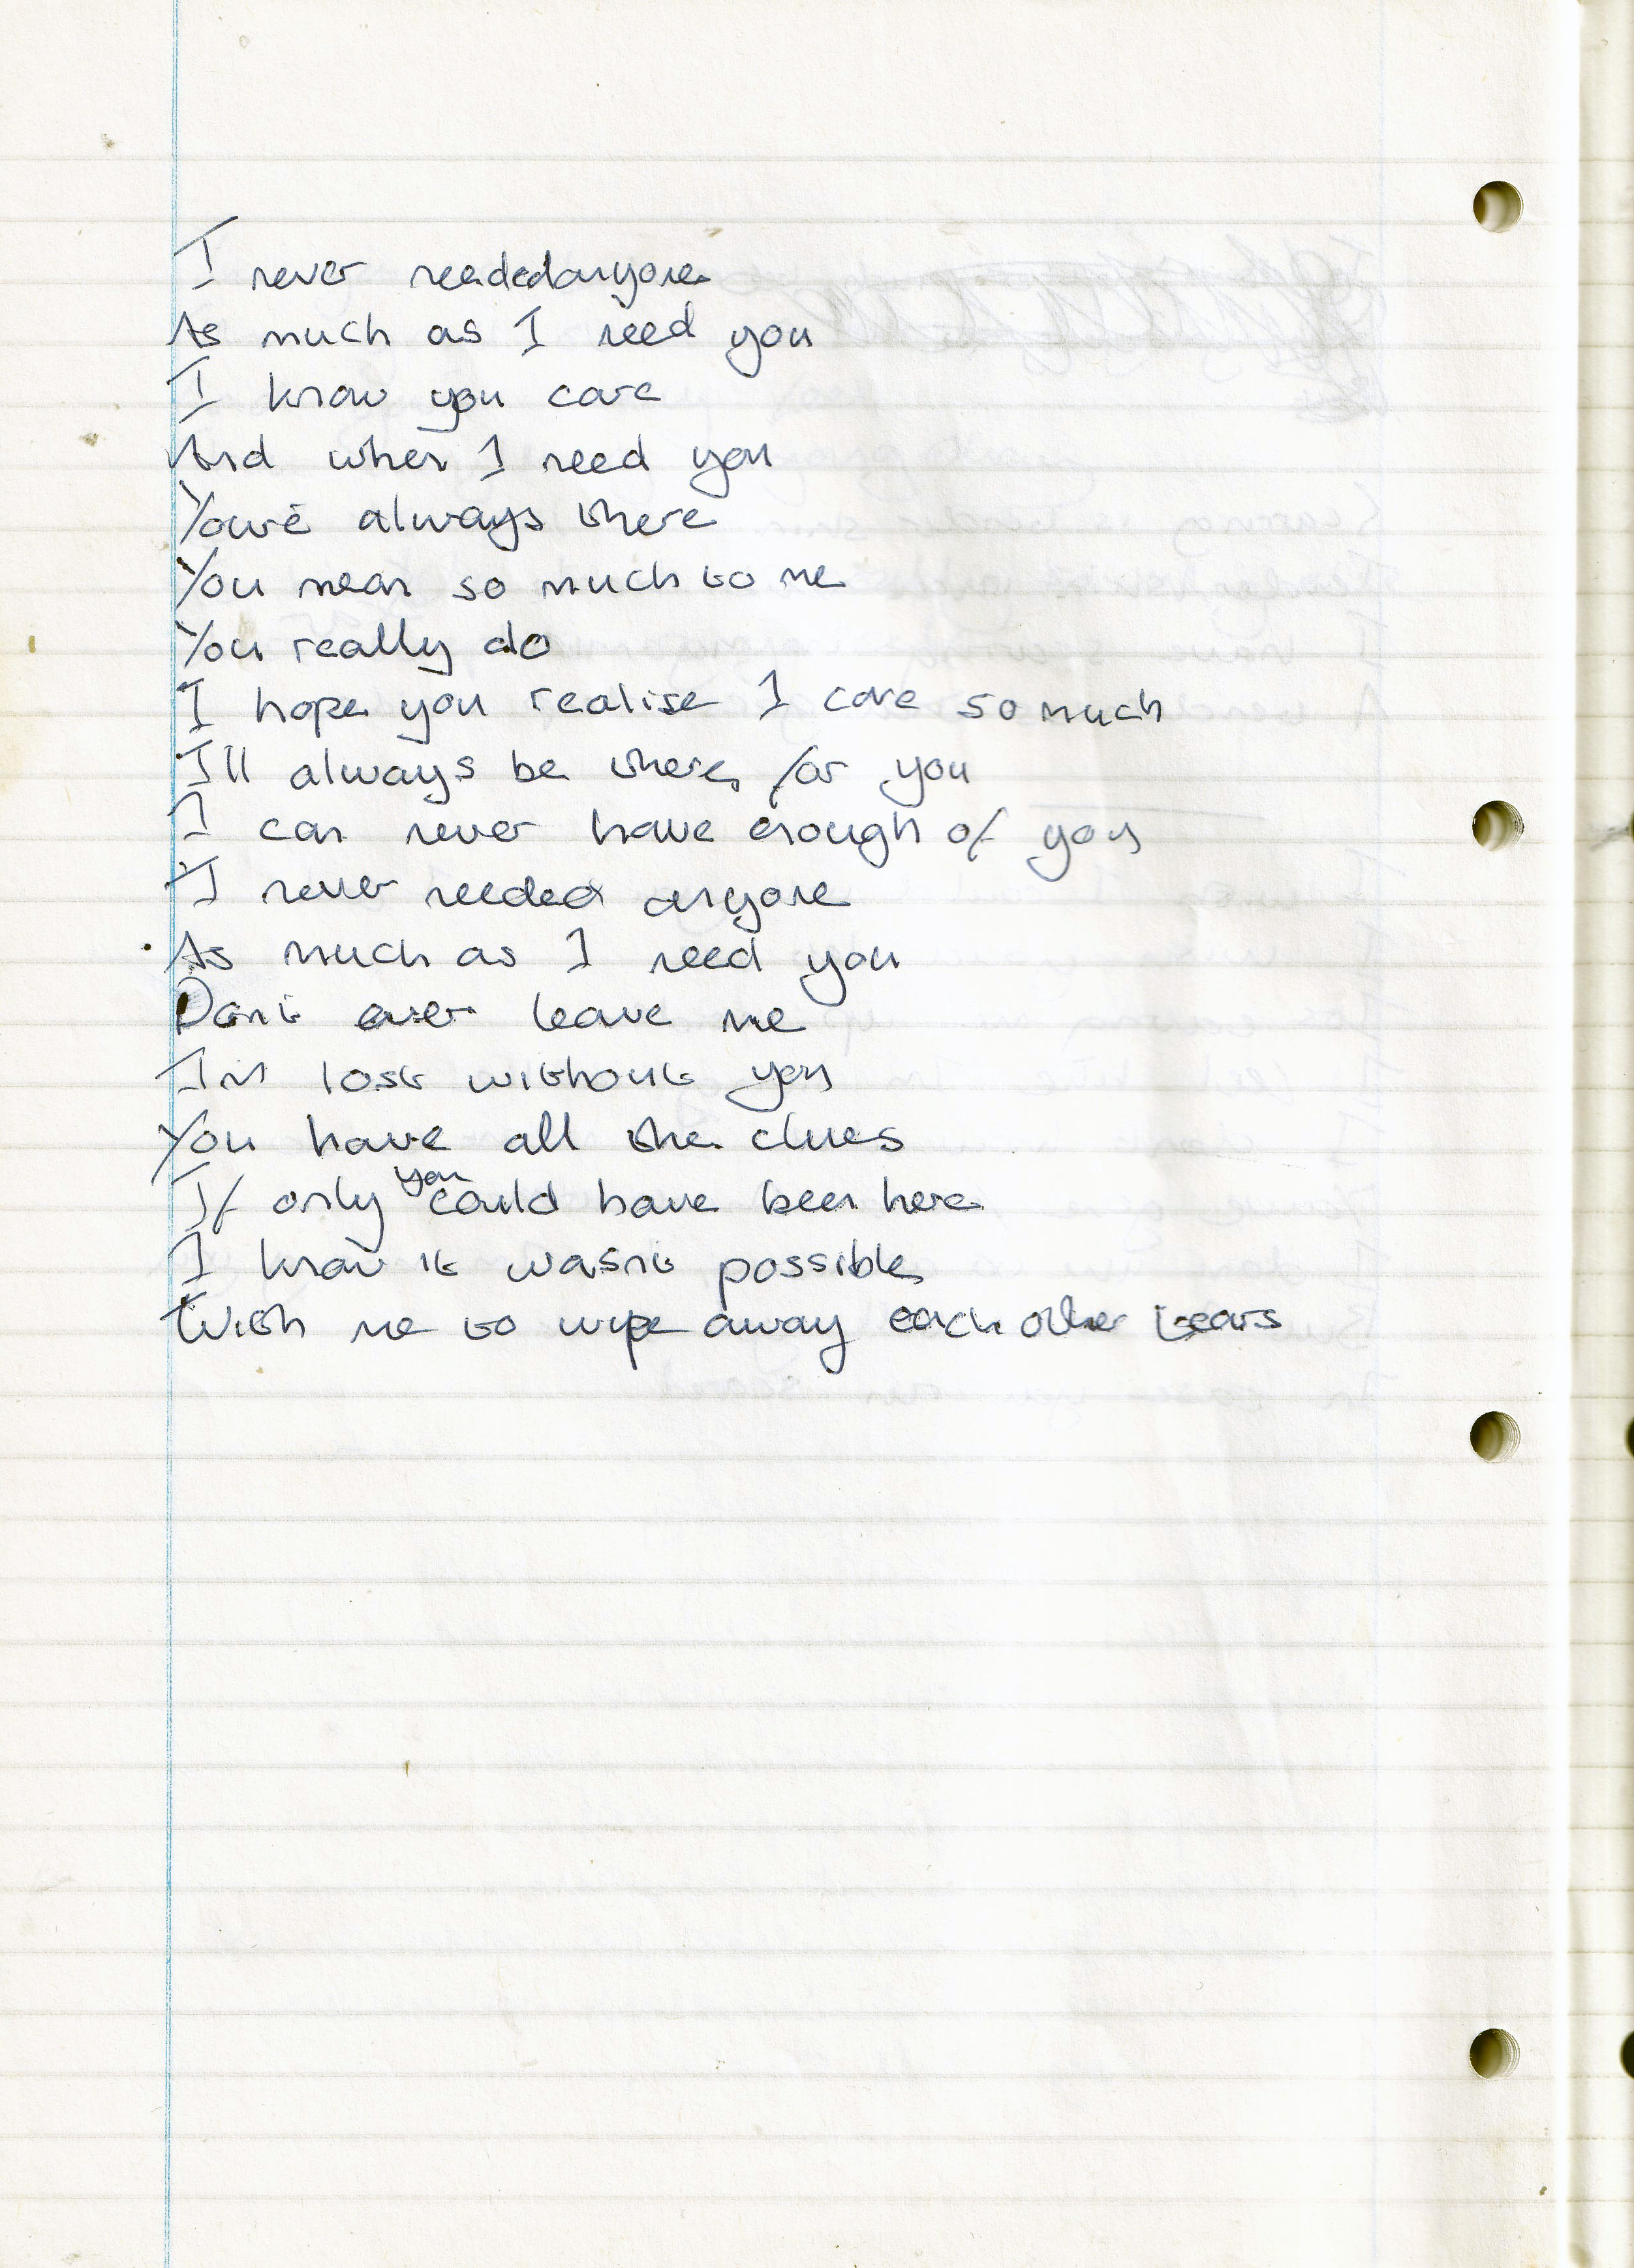 I never neededanyone
As much as I need you
I know you care
And when I need you
You're always there
You mean so much to me
You really do
I hope you realise I care so much
I'll always be there for you
I can never have enough of you
I never needed anyone
As much as I need you
Dont ever leave me
Im lost without you
You have all the clues
If only you could have been here
I know it wasnt possible
With me to wipe away each other tears